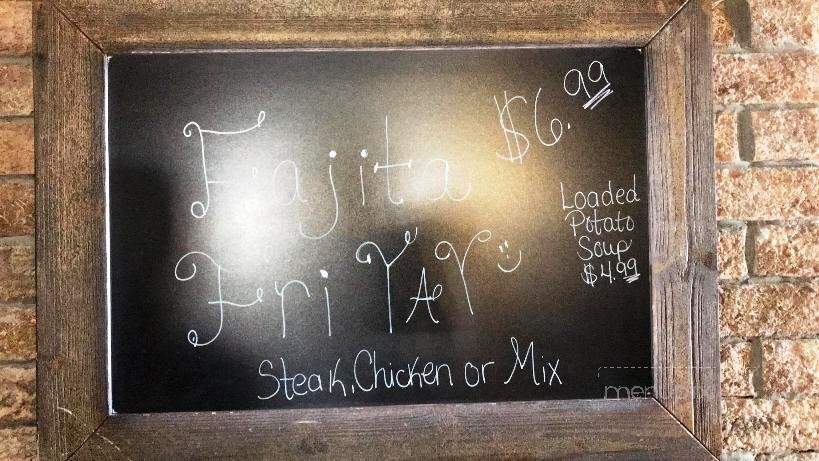 Fajita $6.99
Fri YAY
Steak, Chicken or Mix
Loaded
Potato
Soup
$4.99